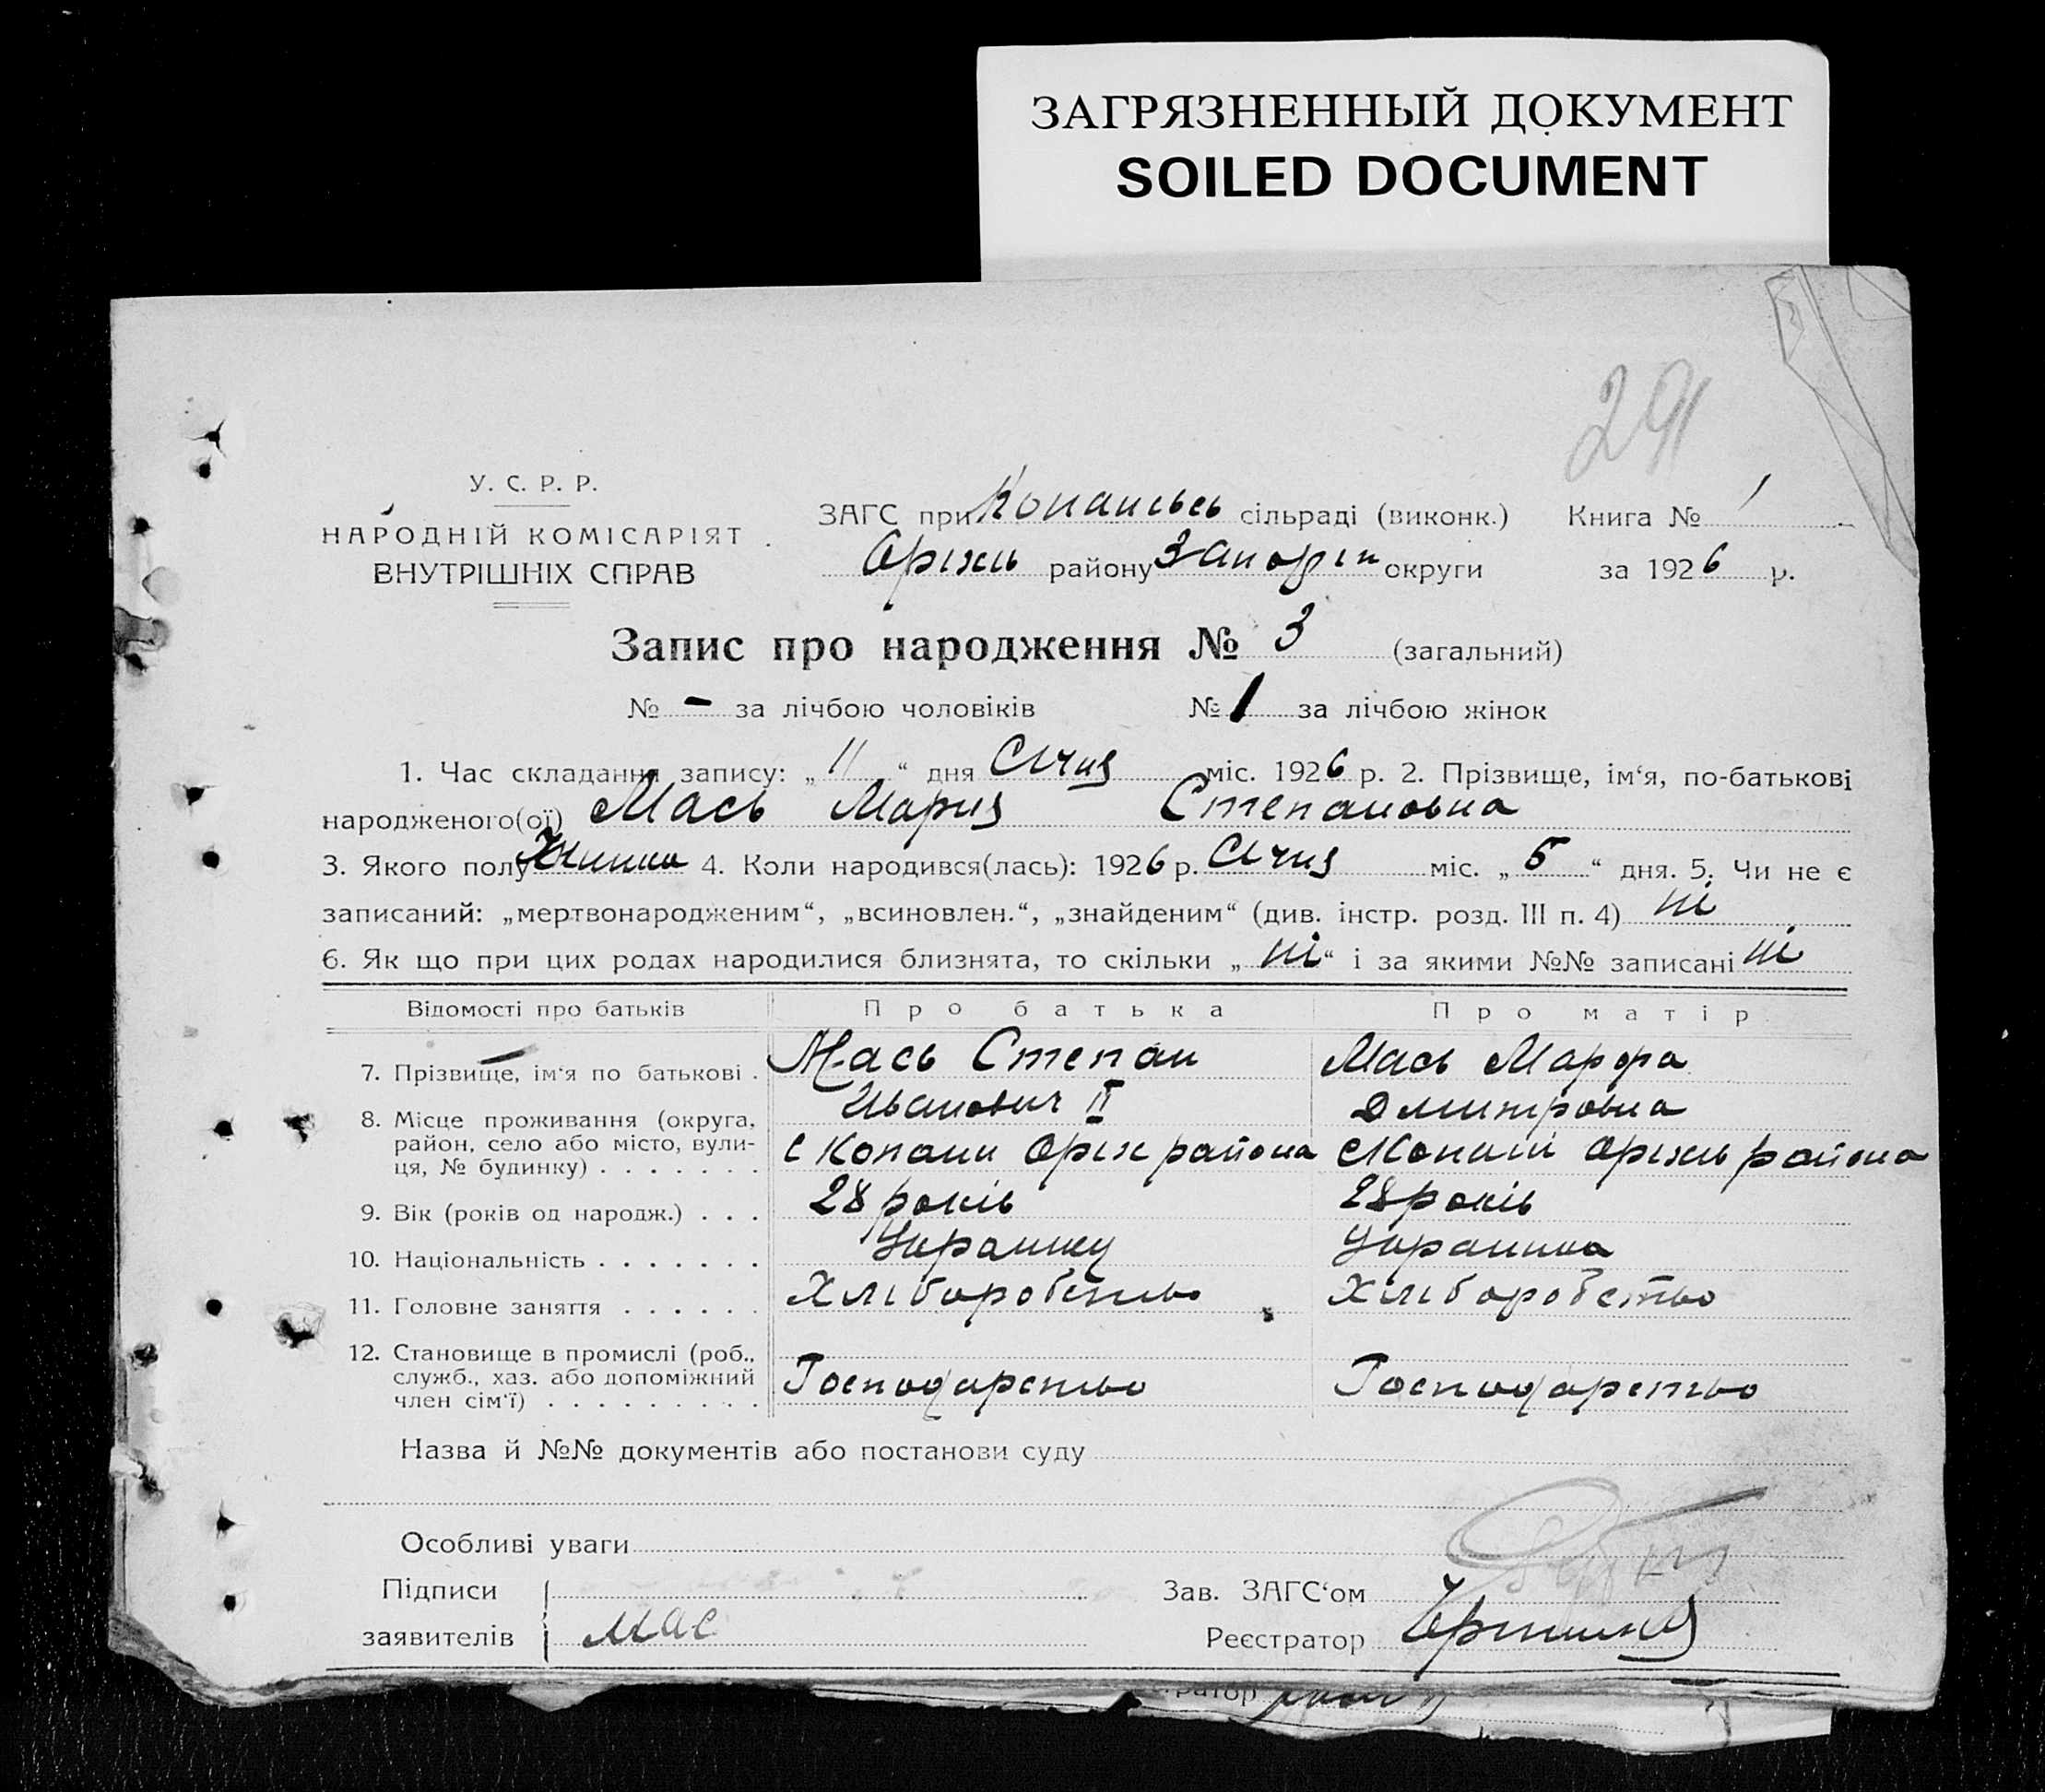 ЗАГРЯЗНЕННЫЙ ДОКУМЕНТ
SOILED DOCUMENT
291
У. С. Р. Р.
НАРОДНІЙ КОМІСАРІЯТ
ВНУТРІШНІХ СПРАВ
ЗАГС при Копансьсь сільраді (виконк.) Книга № 1
Оріхів району Запоріж округи за 1926 р.
Запис про народження № 3 (загальний)
№ - за лічбою чоловіків № 1 за лічбою жінок
1. Час складання запису: „ 11 “ дня Січня міс. 1926 р. 2. Прізвище, ім‘я, по-батькові
народженого(ої) Мась Мария Степановна
3. Якого полу 4. Коли народився(лась): 1926 р. Січня міс. „ 5 “ дня. 5. Чи не є
записаний: „мертвонародженим“, „всиновлен.“, „знайденим“ (див. інстр. розд. III п. 4) ні
6. Як що при цих родах народилися близнята, то скільки „ ні “ і за якими №№ записані ні
Відомості про батьків Про батька Про матір
7. Прізвище, ім‘я по батькові . Мась Степан Мась Марфа
Иванович II Дмитровна
8. Місце проживання (округа,
район, село або місто, вули-
ця, № будинку) . . . . . . . с Копани Оріх района с Копани Оріхів района
9. Вік (років од народж.) . . . 28 років 28 років
10. Національність . . . . . . . Українец Українка
11. Головне заняття . . . . . . Хліборобство Хліборобство
12. Становище в промислі (роб.,
служб., хаз. або допоміжний
член сім‘ї) . . . . . . . . . Господарство Господарство
Назва й №№ документів або постанови суду
Особливі уваги
Підписи Зав. ЗАГС‘ом
заявителів Мас Реєстратор
ратор